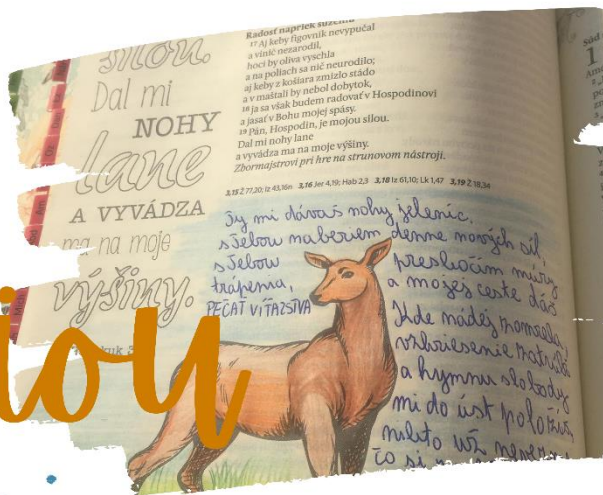 silou.
Dal mi
NOHY
lane
A VYVÁDZA
ma na moje
výšiny.
Radosť napriek súženiu
17 Aj keby figovník nevypučal
a vinič nezarodil,
hoci by oliva vyschla
a na poliach sa nič neurodilo;
aj keby z košiara zmizlo stádo
a v maštali by nebol dobytok,
18 ja sa však budem radovať v Hospodinovi
a jasať v Bohu mojej spásy.
19 Pán, Hospodin, je mojou silou.
Dal mi nohy lane
a vyvádza ma na moje výšiny.
Zbormajstrovi pri hre na strunovom nástroji.
3,15 Ž 77,20; Iz 43,16n 3,16 Jer 4,19; Hab 2,3 3,18 Iz 61,10; Lk 1,47 3,19 Ž 18,34
Ty mi dávaš nohy jeleníc,
s Tebou naberiem denne nových síl,
s Tebou preskočím múry
trápenia, a mojej ceste dáš
PEČAŤ VÍŤAZSTVA
Kde nádej
vzkriesenie
a hymnu slobody
mi do úst položíš,
nikto už
čo si
iou